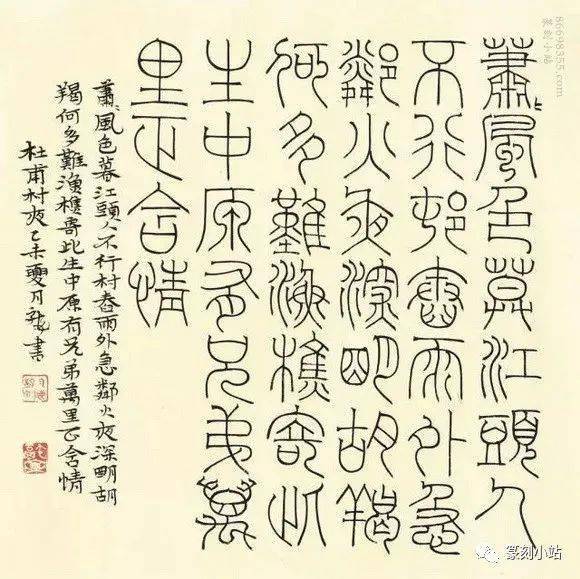 蕭〻風色莫江頭人
不行邨舂雨外急
鄰火夜深明胡羯
何多難漁樵寄此
生中原有兄弟萬
里正含情
蕭〻風色暮江頭人不行村舂雨外急鄰火夜深明胡
羯何多難漁樵寄此生中原有兄弟萬里正含情
杜甫村夜乙未夏月龍書
86698355.com
篆刻小站
篆刻小站